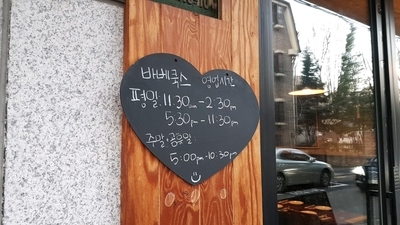 바베쿡스 영업시간
평일: 11:30am-2:30pm
5:30pm-11:30pm
주말·공휴일
5:00pm-10:30pm